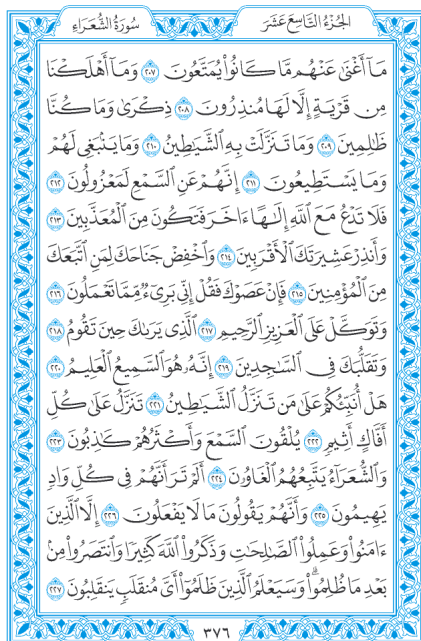 الجُزْءُ التَّاسِعَ عَشَرَ
سُورَةُ الشُّعَرَاءِ
مَآ أَغْنَىٰ عَنْهُم مَّا كَانُوا۟ يُمَتَّعُونَ ٢٠٧ وَمَآ أَهْلَكْنَا
مِن قَرْيَةٍ إِلَّا لَهَا مُنذِرُونَ ٢٠٨ ذِكْرَىٰ وَمَا كُنَّا
ظَٰلِمِينَ ٢٠٩ وَمَا تَنَزَّلَتْ بِهِ ٱلشَّيَٰطِينُ ٢١٠ وَمَا يَنۢبَغِى لَهُمْ
وَمَا يَسْتَطِيعُونَ ٢١١ إِنَّهُمْ عَنِ ٱلسَّمْعِ لَمَعْزُولُونَ ٢١٢
فَلَا تَدْعُ مَعَ ٱللَّهِ إِلَٰهًا ءَاخَرَ فَتَكُونَ مِنَ ٱلْمُعَذَّبِينَ ٢١٣
وَأَنذِرْ عَشِيرَتَكَ ٱلْأَقْرَبِينَ ٢١٤ وَٱخْفِضْ جَنَاحَكَ لِمَنِ ٱتَّبَعَكَ
مِنَ ٱلْمُؤْمِنِينَ ٢١٥ فَإِنْ عَصَوْكَ فَقُلْ إِنِّى بَرِىٓءٌ مِّمَّا تَعْمَلُونَ ٢١٦
وَتَوَكَّلْ عَلَى ٱلْعَزِيزِ ٱلرَّحِيمِ ٢١٧ ٱلَّذِى يَرَىٰكَ حِينَ تَقُومُ ٢١٨
وَتَقَلُّبَكَ فِى ٱلسَّٰجِدِينَ ٢١٩ إِنَّهُۥ هُوَ ٱلسَّمِيعُ ٱلْعَلِيمُ ٢٢٠
هَلْ أُنَبِّئُكُمْ عَلَىٰ مَن تَنَزَّلُ ٱلشَّيَٰطِينُ ٢٢١ تَنَزَّلُ عَلَىٰ كُلِّ
أَفَّاكٍ أَثِيمٍ ٢٢٢ يُلْقُونَ ٱلسَّمْعَ وَأَكْثَرُهُمْ كَٰذِبُونَ ٢٢٣
وَٱلشُّعَرَآءُ يَتَّبِعُهُمُ ٱلْغَاوُۥنَ ٢٢٤ أَلَمْ تَرَ أَنَّهُمْ فِى كُلِّ وَادٍ
يَهِيمُونَ ٢٢٥ وَأَنَّهُمْ يَقُولُونَ مَا لَا يَفْعَلُونَ ٢٢٦ إِلَّا ٱلَّذِينَ
ءَامَنُوا۟ وَعَمِلُوا۟ ٱلصَّٰلِحَٰتِ وَذَكَرُوا۟ ٱللَّهَ كَثِيرًا وَٱنتَصَرُوا۟ مِنۢ
بَعْدِ مَا ظُلِمُوا۟ۗ وَسَيَعْلَمُ ٱلَّذِينَ ظَلَمُوٓا۟ أَىَّ مُنقَلَبٍ يَنقَلِبُونَ ٢٢٧
٣٧٦